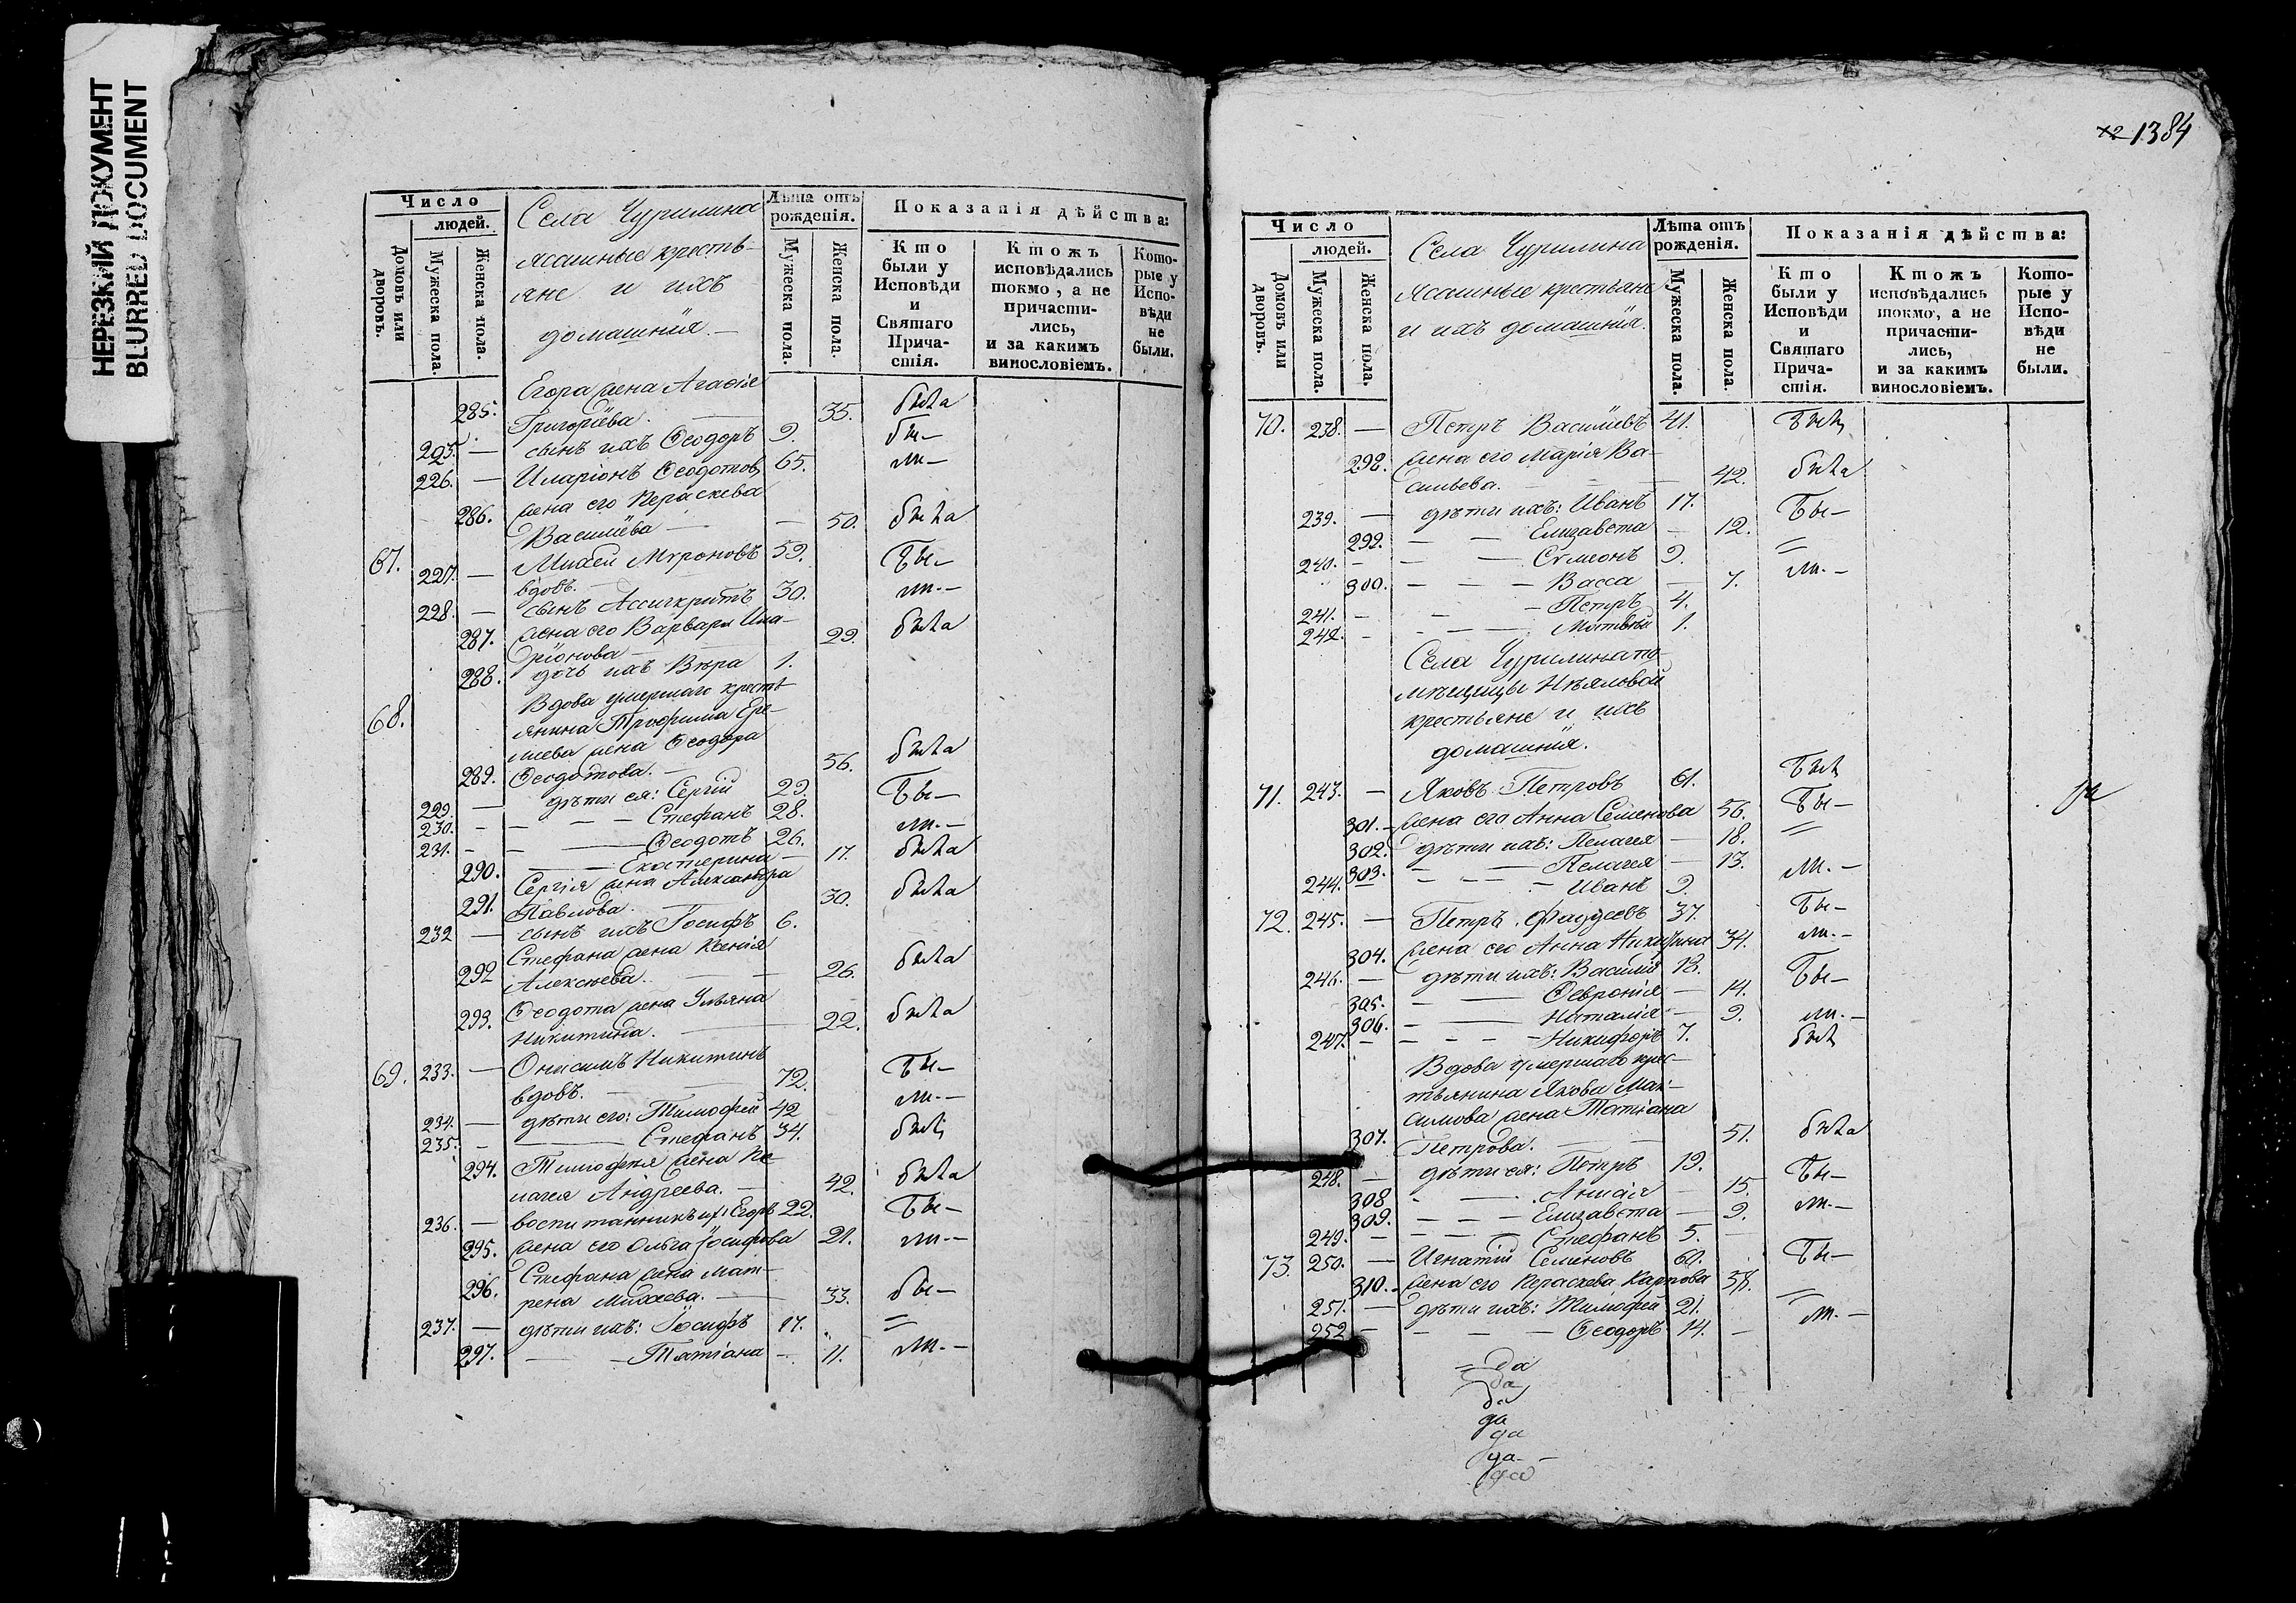 НЕРЕЗКИЙ ДОКУМЕНТ
BLURRED DOCUMENT
Число
людей.
Домовъ или дворовъ.
Мужеска пола.
Женска пола.
Села Чурилина
ясашные кресть-
яне и ихъ
домашнія.
Лѣта отъ рожденія.
Мужеска пола.
Женска пола.
Показанія дѣйства:
Кто были у Исповѣди и Святаго Причастія.
Ктожъ исповѣдались токмо, а не причастились, и за какимъ винословіемъ.
Которые у Исповѣди не были.
Егора жена Агафія
285. Григоріева. — 35. была
225. — сынъ ихъ Ѳеодоръ 9. бы—
226. — Иларіонъ Ѳеодотов 65. ли—
286. жена его Параскева
Василіева — 50. была
67. 227. — Михей Мѵроновъ 59. бы—
вдовъ.
228. — сынъ Ассигкритъ 30. ли.—
287. жена его Варвара Ила-
ріонова — 29. была
288. дочь ихъ Вѣра 1.
68. Вдова умершаго кресть-
янина Трофима Ере-
меева жена Ѳеодора
289. Ѳеодотова. — 56. была
229. — дѣти ея: Сергій 29. бы—
230. — Стефанъ 28.
231. — Ѳеодотъ 26. ли.—
290. — Екатерина — 17. была
Сергія жена Александра
291. Павлова. 30. была
232 — сынъ ихъ Іосифъ 6.
Стефана жена Ксенія
292 Алексѣева. — 26. была
293. Ѳеодота жена Ульяна
Никитина. — 22. была
69. 233. — Онисимъ Никитинъ бы—
вдовъ. — 72. ли.—
234. — дѣти его: Тимофей 42
235. — Стефанъ 34. былъ
294. Тимофея жена Пе-
лагея Андреева. — 42. была
236. — воспитанникъ их Егоръ 22. бы—
295. жена его Ольга Іосифова 21. ли.—
296. Стефана жена Мат-
рена Михеева. — 33. бы—
237. — дѣти ихъ: Іосифъ 17. =
297. — Татіана — 11. ли.—
1384
Число
людей.
Домовъ или дворовъ.
Мужеска пола.
Женска пола.
Села Чурилина
Ясашные крестьяне
и ихъ домашнія.
Лѣта отъ рожденія.
Мужеска пола.
Женска пола.
Показанія дѣйства:
Кто были у Исповѣди и Святаго Причастія.
Ктожъ исповѣдались токмо, а не причастились, и за какимъ винословіемъ.
Которые у Исповѣди не были.
70. 238. — Петръ Василіевъ 41. былъ
298. жена его Марія Ва-
сильева. — 42. была
239. — дѣти ихъ: Иванъ 17. бы—
299. — Елизавета — 12. =
240. — Сѵмеонъ 9.
300. — Васса — 7. ли.—
241. — Петръ 4.
242. — Матвѣй 1.
Села Чурилина по-
мѣщицы Нѣяловой
крестьяне и ихъ
домашнія.
71. 243. — Яковъ Петровъ 61. былъ
301. — жена его Анна Семенова 56. бы—
302. дѣти ихъ: Пелагея — 18. =
303. — Пелагея — 13.
244. — Иванъ 9. ли.—
72. 245. — Петръ Фаддеевъ 37. бы—
304. жена его Анна Никитина 34. ли.—
246. — дѣти ихъ: Василій 18. бы—
305. — Ѳевронія — 14.
306. — Наталія — 9. ли.—
247. — Никифоръ 7. былъ
Вдова умершаго крес-
тьянина Якова Мак-
симова жена Татіана
307. Петрова. — 51. была
248. — дѣти ея: Петръ 19. бы—
308 — Анисія — 15.
309. — Елизавета — 9. ли.—
249. — Стефанъ 5. —
73. 250. — Игнатій Семеновъ 60. бы—
310. — жена его Параскева Карпова 58.
251. — дѣти ихъ: Тимофей 21. =
252 — Ѳеодоръ 14. — ли.—
да
да
да
да
да
да
да